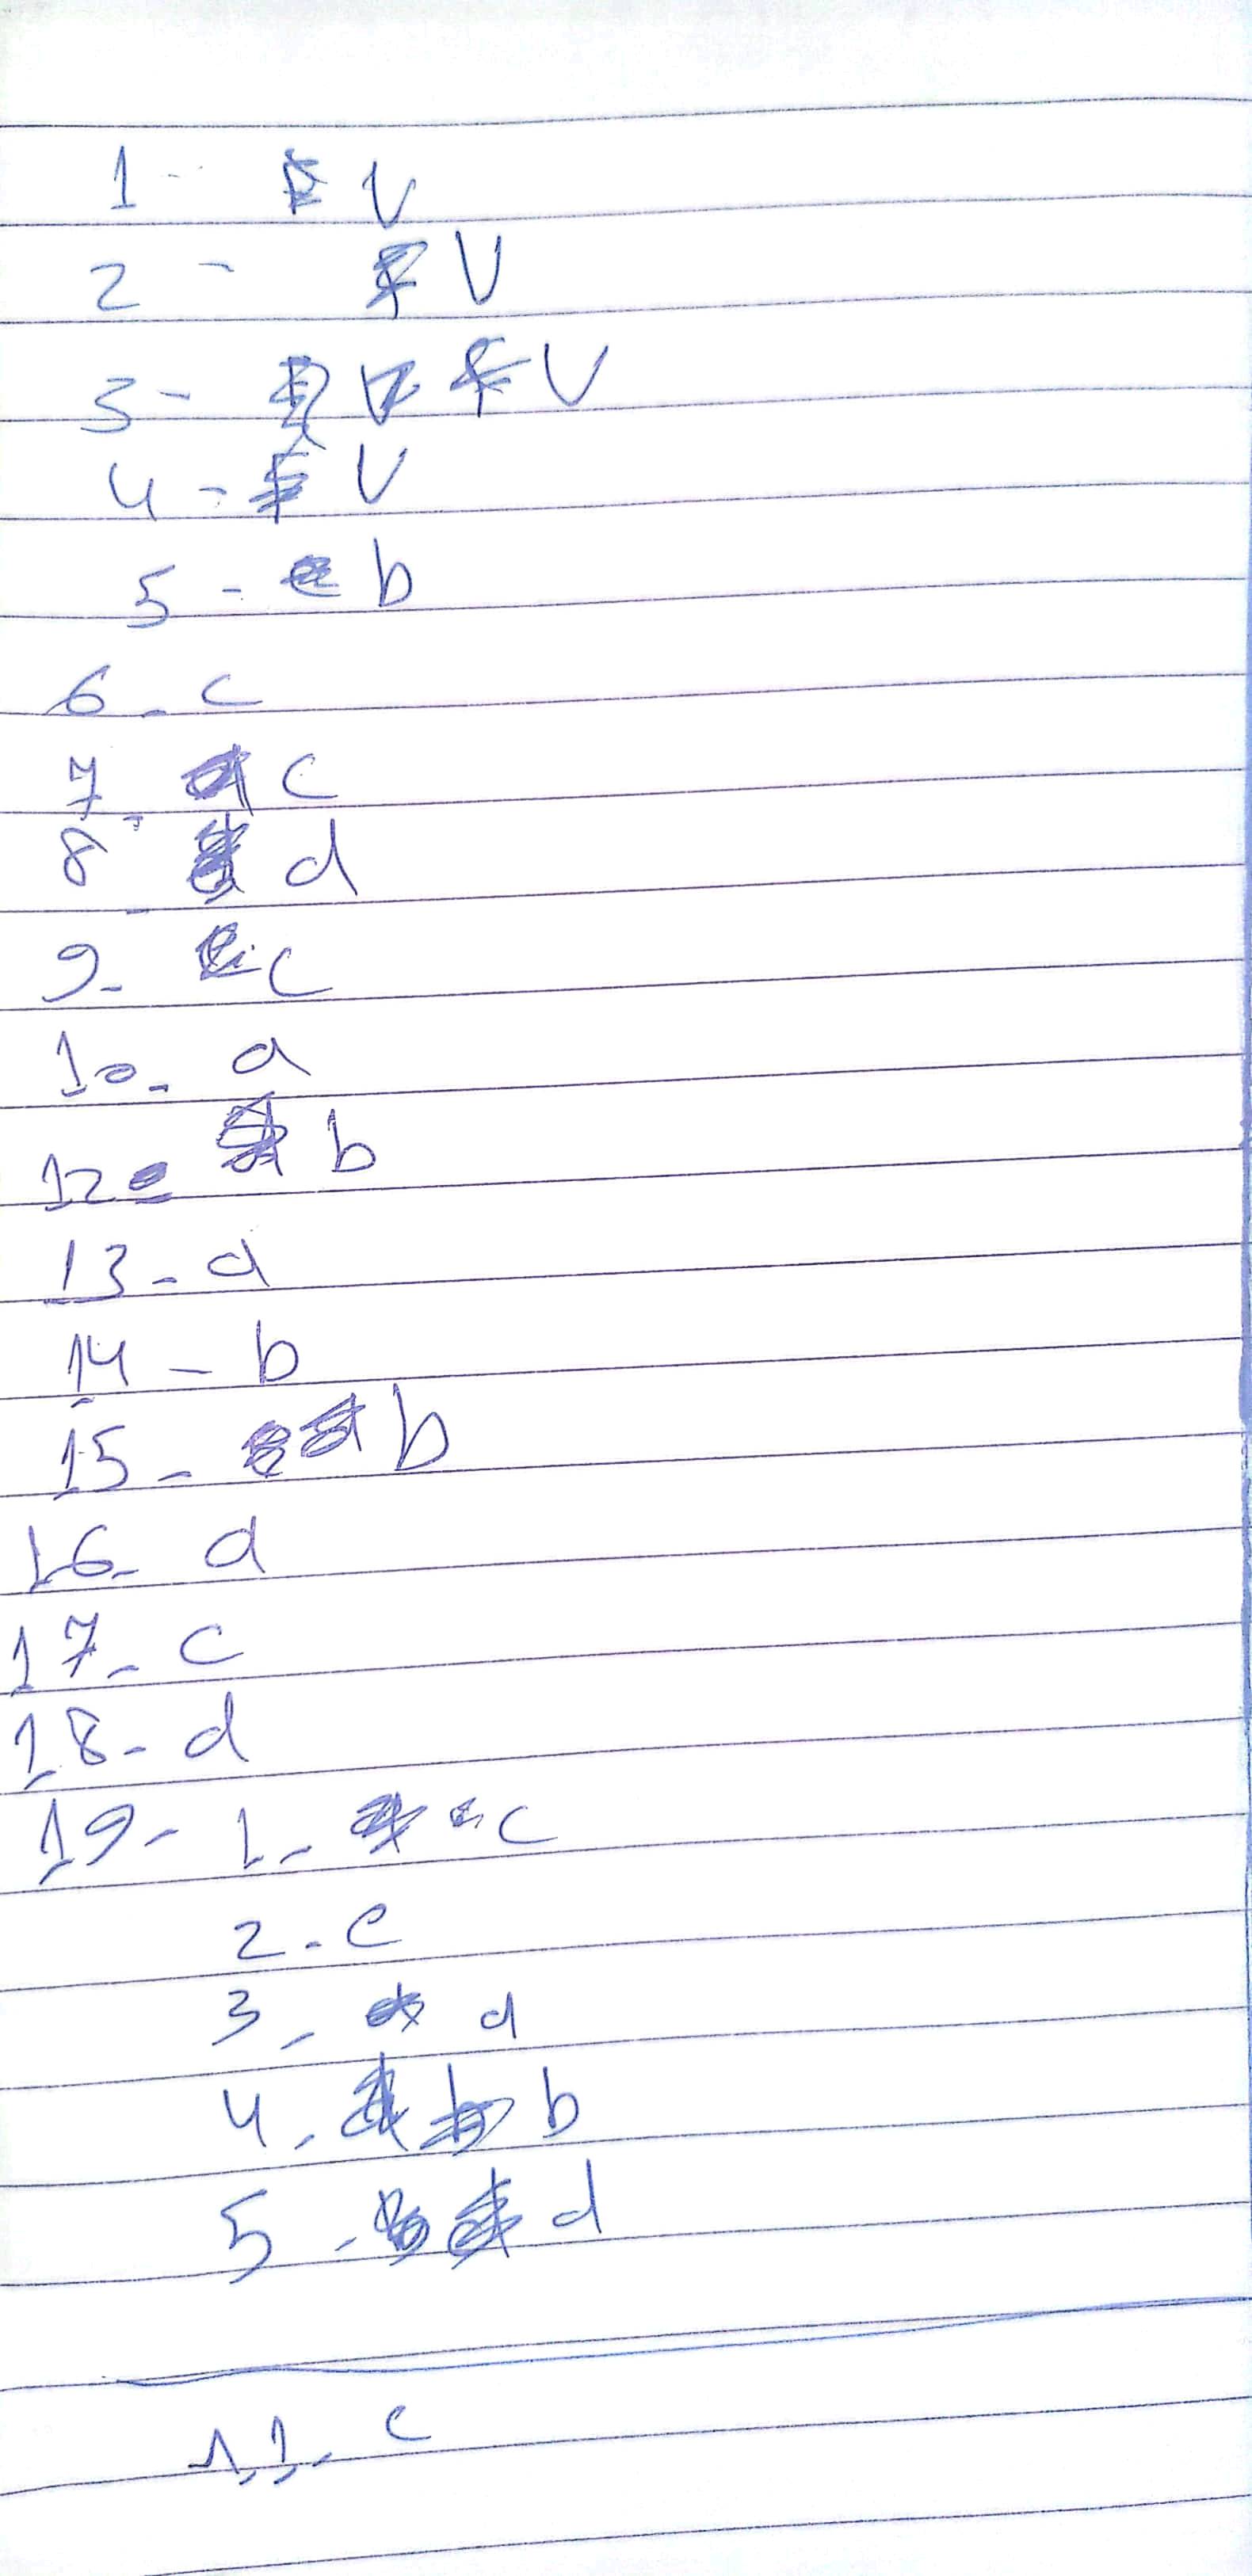 1 - V
2 - V
3 - V
4 - V
5 - b
6 - c
7 - c
8 - d
9 - c
10 - a
12 - b
13 - d
14 - b
15 - b
16 - d
17 - c
18 - d
19 - 1 - c
2 - e
3 - d
4 - b
5 - d
11 - c